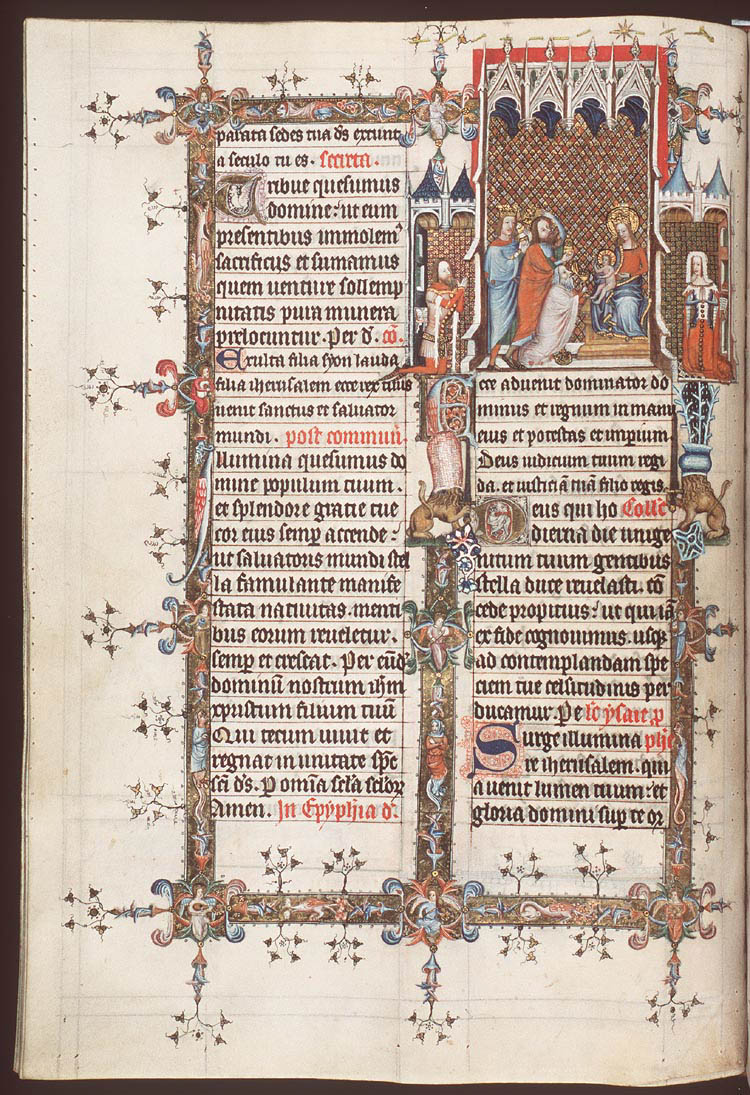 parata sedes tua d̄s ex tunc
a seculo tu es. secreta.
Tribue quesumus
domine: ut eum
presentibus immolem᷒
sacrificiis et sumamus
quem venture sollemp
nitatis pura munera
prelocuntur. Per d̄. cō.
Exulta filia syon lauda
filia iherusalem ecce rex tuus
uenit sanctus et saluator
mundi. post commun̄.
Illumina quesumus do
mine populum tuum.
et splendore gracie tue
cor eius semꝑ accende:
ut saluatoris mundi stel
la famulante manife
stata natiuitas. menti
bus eorum reueletur.
semꝑ et crescat. Per eūd̄
dominū nostrum ihm̄
xpistum filium tuū
Qui tecum uiuit et
regnat in unitate sp̄c
sc̄i d̄s. P om̄ia sc̄la sc̄lor̄
Amen. In Epyphia d̄.
Ecce aduenit dominator do
minus et regnum in manu
eius et potestas et imperium
Deus iudicium tuum regi
da. et iusticiā tuā filio regis.
Deus qui ho Collc̄
dierna die unige
nitum tuum gentibus
stella duce reuelasti. cō
cede propitius: ut qui iā
ex fide cognouimus. usq̨
ad contemplandam spe
ciem tue celsitudinis per
ducamur. Pe lc̄ ysaie ꝓ
Surge illumina phe
re iherusalem. qui
a uenit lumen tuum: et
gloria domini sup̄ te or